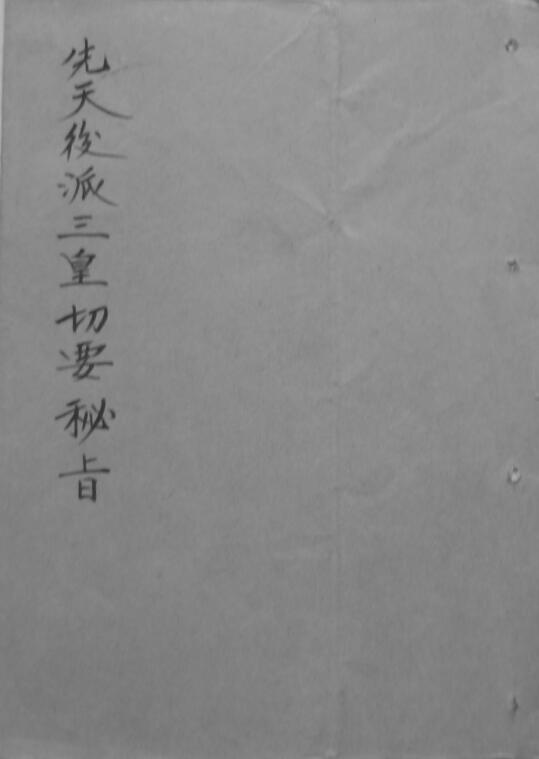 先天後派三皇切要秘旨